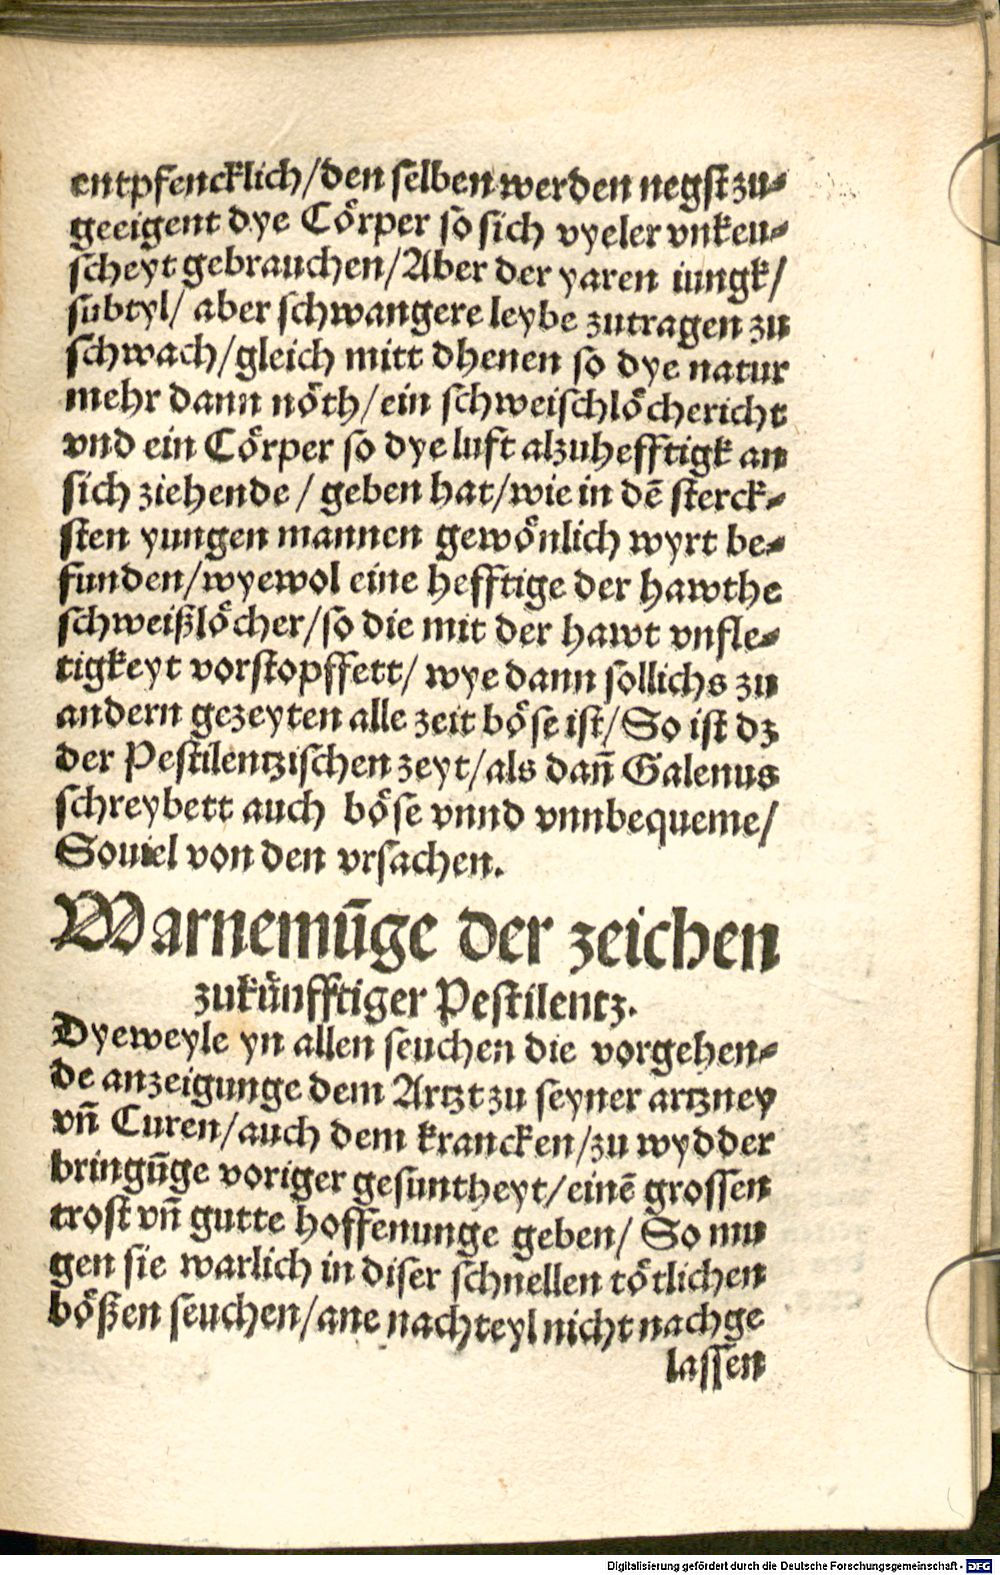 entpfencklich/den selben werden negst zu-
geeigent dye Cörper so sich vyeler vnkeu-
scheyt gebrauchen/Aber der yaren iungk/
subtyl/ aber schwangere leybe zutragen zu
schwach/gleich mitt dhenen so dye natur
mehr dann nöth/ein schweischlöchericht
vnd ein Cörper so dye luft alzuhefftigk an
sich ziehende / geben hat/wie in dē sterck-
sten yungen mannen gewönlich wyrt be-
funden/wyewol eine hefftige der hawthe
schweißlöcher/so die mit der hawt vnfle-
tigkeyt vorstopffett/ wye dann sollichs zu
andern gezeyten alle zeit böse ist/So ist dz
der Pestilentzischen zeyt/als dan̄ Galenus
schreybett auch böse vnnd vnnbequeme/
Souiel von den vrsachen.
Warnemūge der zeichen
zukünfftiger Pestilentz.
Dyeweyle yn allen seuchen die vorgehen-
de anzeigunge dem Artzt zu seyner artzney
vn̄ Curen/auch dem krancken/zu wydder
bringūge voriger gesuntheyt/einē grossen
trost vn̄ gutte hoffenunge geben/ So mu
gen sie warlich in diser schnellen tötlichen
bößen seuchen/ane nachteyl nicht nachge
lassen
Digitalisierung gefördert durch die Deutsche Forschungsgemeinschaft - DFG